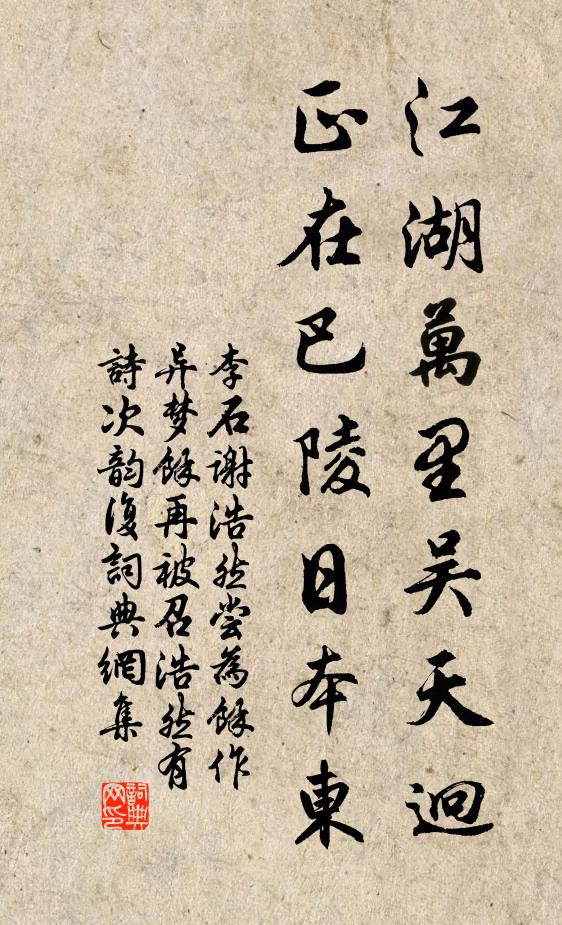 江湖萬里吴天迥
正在巴陵日本東
李石謝浩然嘗為餘作
异梦餘再被召浩然有
詩次韵復詞典網集
詞典网印